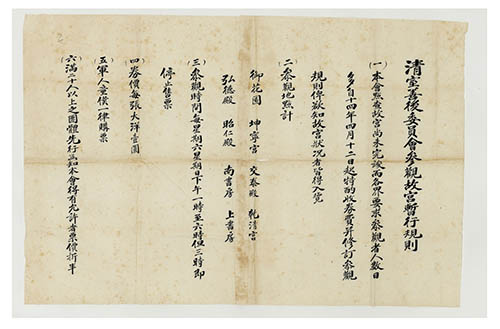 清室善後委員會參觀故宮暫行規則
(一)本會點查故宮尚未完竣而各界要求參觀者人數日
多自十四年四月十二日起特酌收券費並修訂參觀
規則俾欲知故宮狀況者皆得入覽
(二)參觀地點計
御花園 坤寧宮 交泰殿 乾清宮
弘德殿 昭仁殿 南書房 上書房
(三)參觀時間每星期六星期日下午一時至六時但三時即
停止售票
(四)券價每張大洋壹圓
(五)軍人童僕一律購票
(六)滿二十人以上之團體先行函知本會得有允許者票價折半